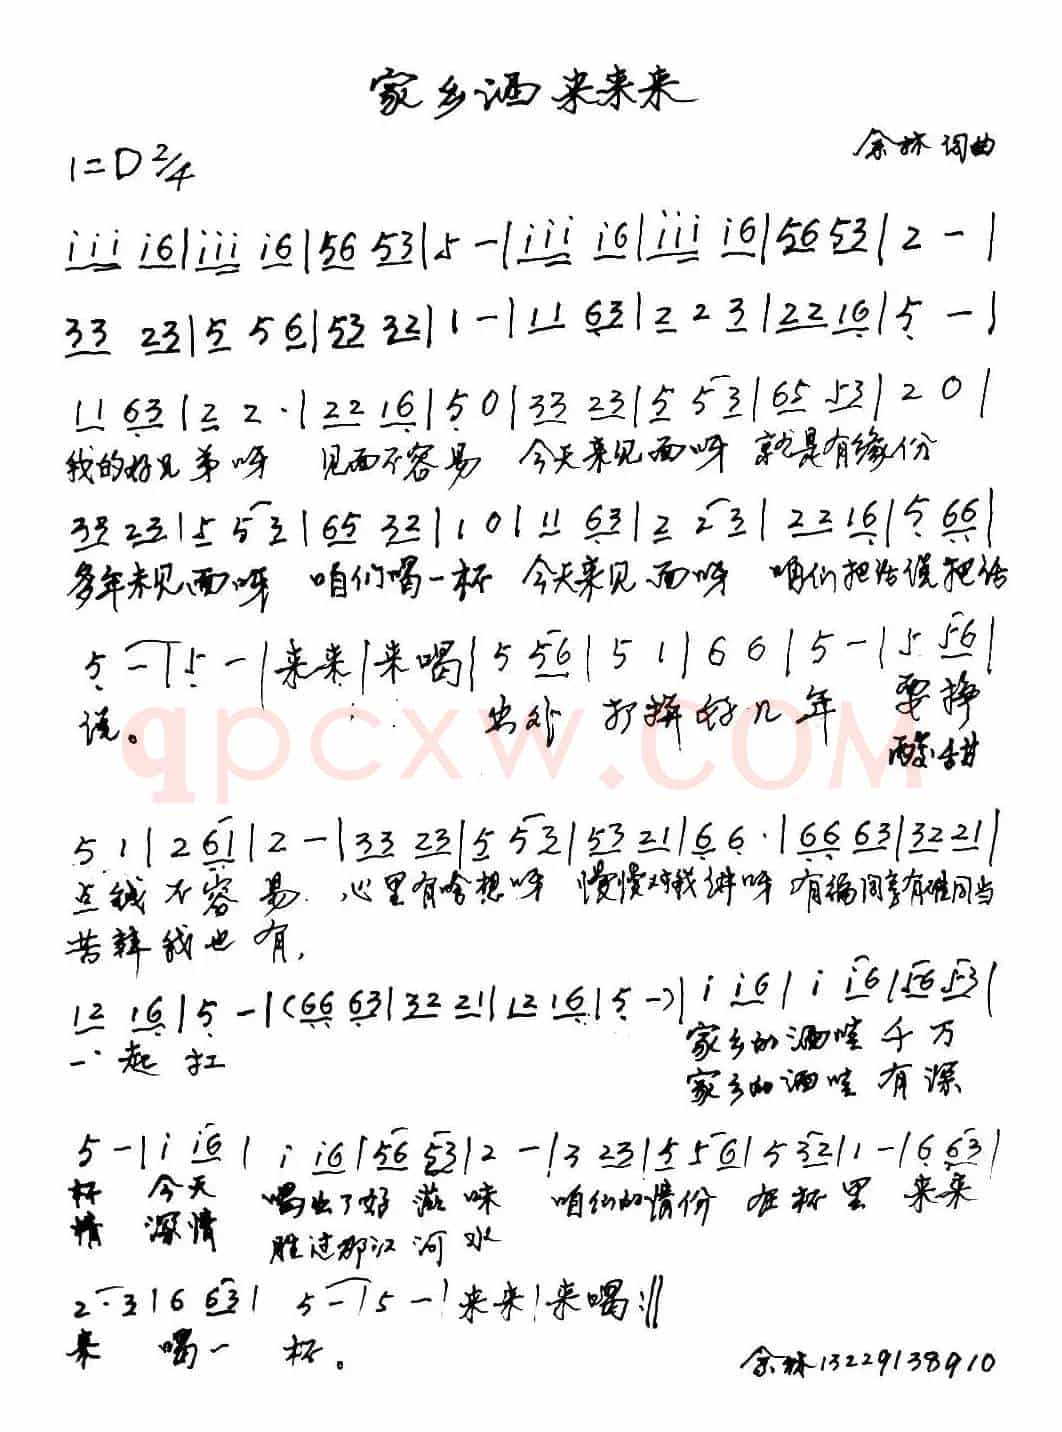 家乡酒来来来
1=D 2/4
余林 词曲
i i i i6 | i i i i6 | 56 53 | 5 - | i i i i6 | i i i i6 | 56 53 | 2 - |
33 23 | 5 5 6 | 53 32 | 1 - | 11 63 | 2 2 3 | 22 16 | 5 - |
11 63 | 2 2 · | 22 16 | 5 0 | 33 23 | 5 53 | 65 53 | 2 0 |
我的好兄弟呀 见面不容易 今天来见面呀 就是有缘份
33 23 | 5 53 | 65 32 | 1 0 | 11 63 | 2 23 | 22 16 | 5 66 |
多年未见面呀 咱们喝一杯 今天来见面呀 咱们把话说把话
5 - | 5 - | 来来 | 来喝 | 5 56 | 5 1 | 6 6 | 5 - | 5 56 |
说。 出外 打拼好几年 要挣
酸甜
qpcxw.COM
5 1 | 2 61 | 2 - | 33 23 | 5 53 | 53 21 | 6 6 · | 66 63 | 32 21 |
点钱不容易 心里有啥想呀 慢慢对我讲呀 有福同享有难同当
苦辣我也有,
12 16 | 5 - | (66 63 | 32 21 | 12 16 | 5 -) | i i6 | i i6 | 56 53 |
一起扛 家乡的酒哇千万
家乡的酒哇有深
5 - | i i6 | i i6 | 56 53 | 2 - | 3 23 | 5 56 | 5 32 | 1 - | 6 63 |
杯 今天 喝出了好滋味 咱们的情份 在杯里 来来
情 深情 胜过那江河水
2 · 3 | 6 63 | 5 - | 5 - | 来来 | 来喝 :||
来 喝一 杯。
余林13229138910